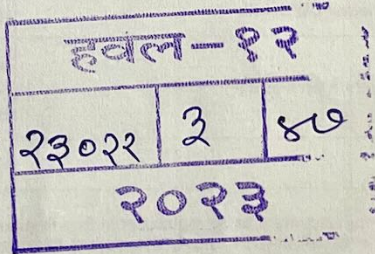 हवल-१२
२३०२२ ३ ४७
२०२३